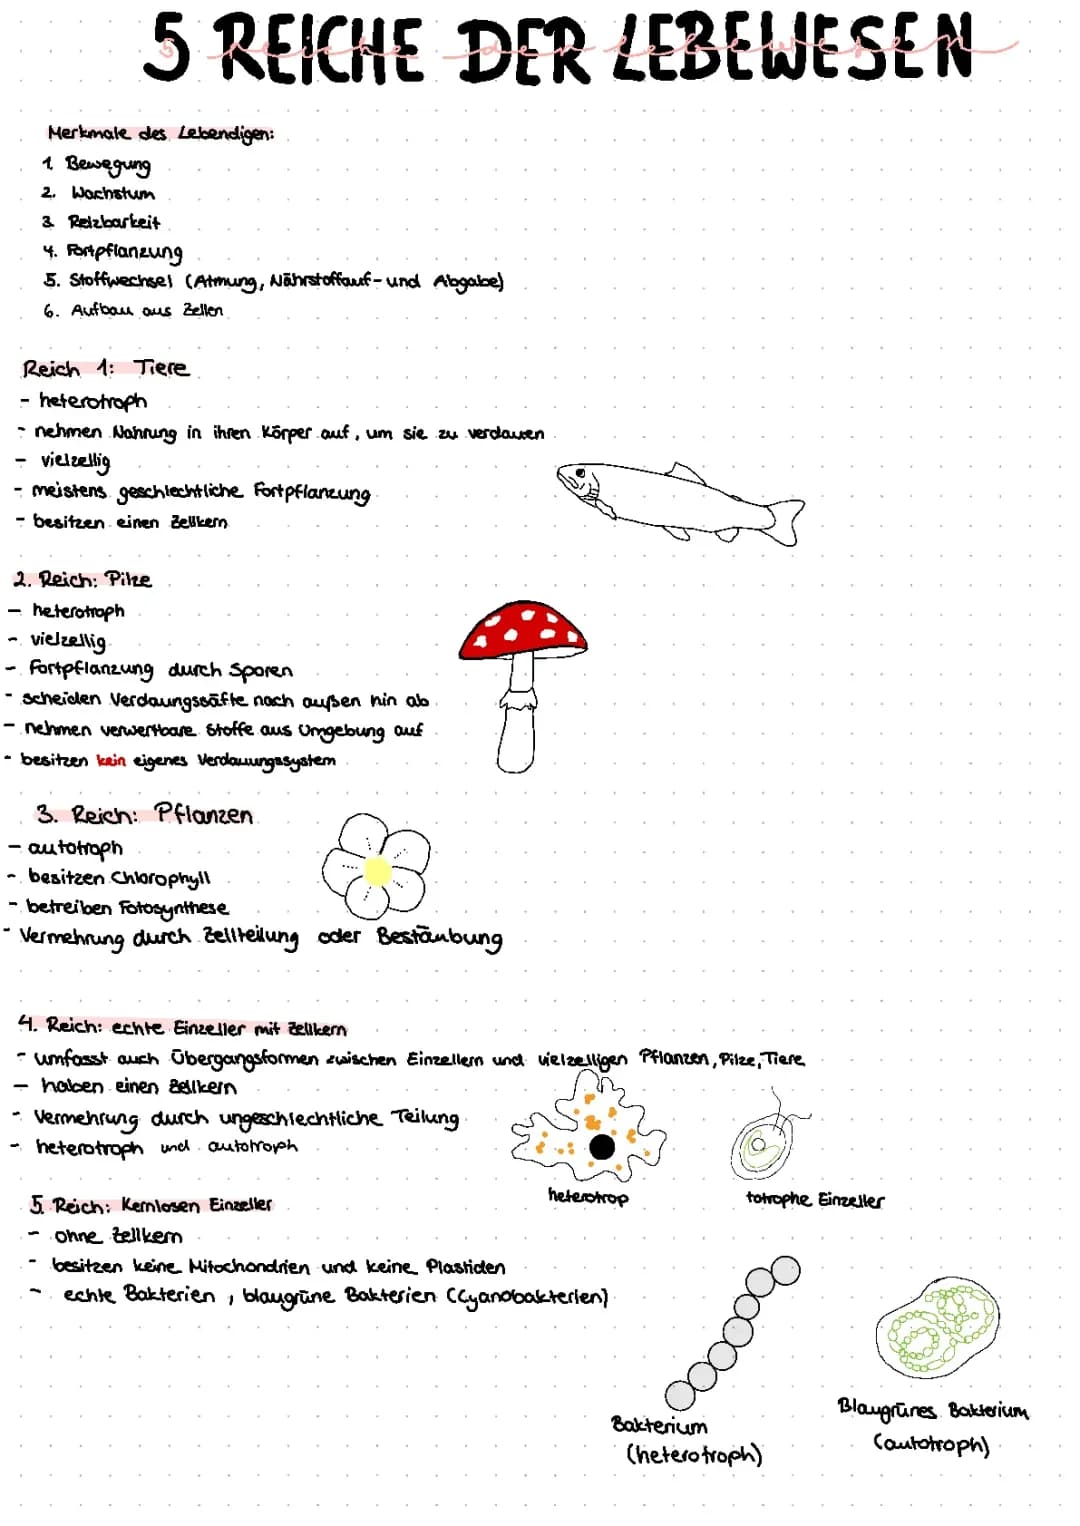 5 REICHE DER LEBEWESEN
5 Reiche der Lebewesen
Merkmale des Lebendigen:
1. Bewegung
2. Wachstum
3. Reizbarkeit
4. Fortpflanzung
5. Stoffwechsel (Atmung, Nährstoffauf- und Abgabe)
6. Aufbau aus Zellen
Reich 1: Tiere
- heterotroph
- nehmen Nahrung in ihren Körper auf, um sie zu verdauen
- vielzellig
- meistens geschlechtliche Fortpflanzung
- besitzen einen Zellkern
2. Reich: Pilze
- heterotroph
- vielzellig
- Fortpflanzung durch Sporen
- scheiden Verdaungssäfte nach außen hin ab
- nehmen verwertbare Stoffe aus Umgebung auf
- besitzen kein eigenes Verdauungssystem
3. Reich: Pflanzen
- autotroph
- besitzen Chlorophyll
- betreiben Fotosynthese
- Vermehrung durch Zellteilung oder Bestäubung
4. Reich: echte Einzeller mit Zellkern
- umfasst auch Übergangsformen zwischen Einzellern und vielzelligen Pflanzen, Pilze, Tiere
- haben einen Zellkern
- Vermehrung durch ungeschlechtliche Teilung
- heterotroph und autotroph
heterotrop
totrophe Einzeller
5. Reich: Kernlosen Einzeller
- ohne Zellkern
- besitzen keine Mitochondrien und keine Plastiden
- echte Bakterien, blaugrüne Bakterien (Cyanobakterien)
Bakterium
(heterotroph)
Blaugrünes Bakterium
(autotroph)